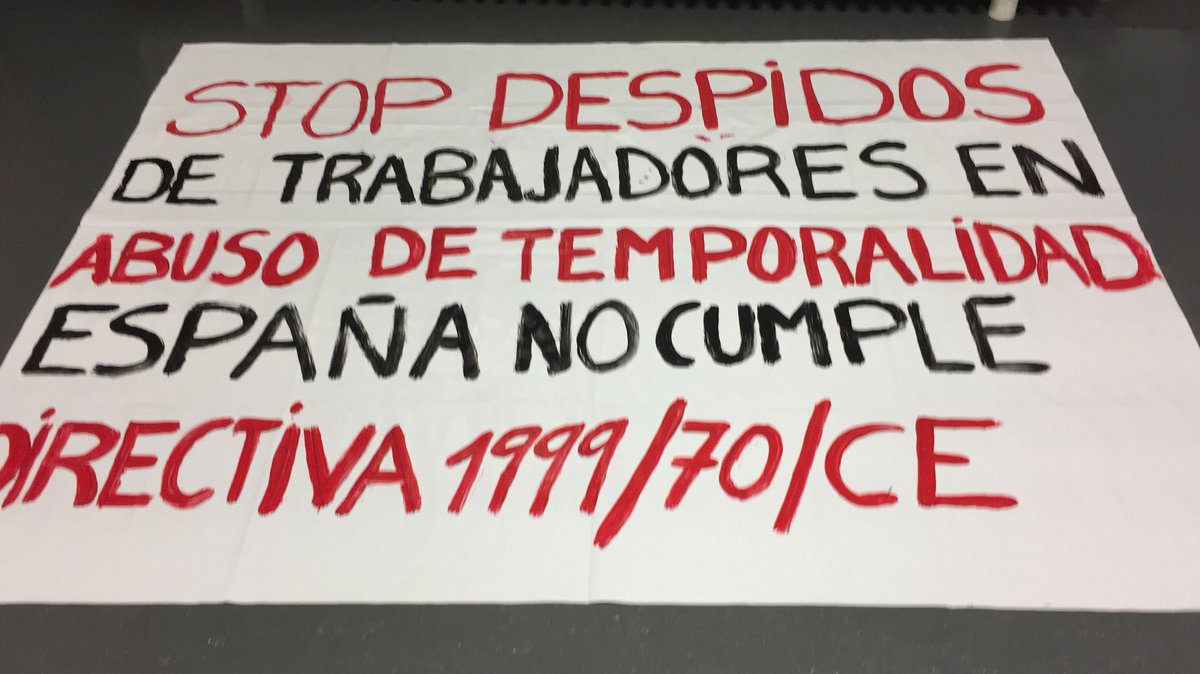 STOP DESPIDOS
DE TRABAJADORES EN
ABUSO DE TEMPORALIDAD
ESPAÑA NO CUMPLE
DIRECTIVA 1999/70/CE